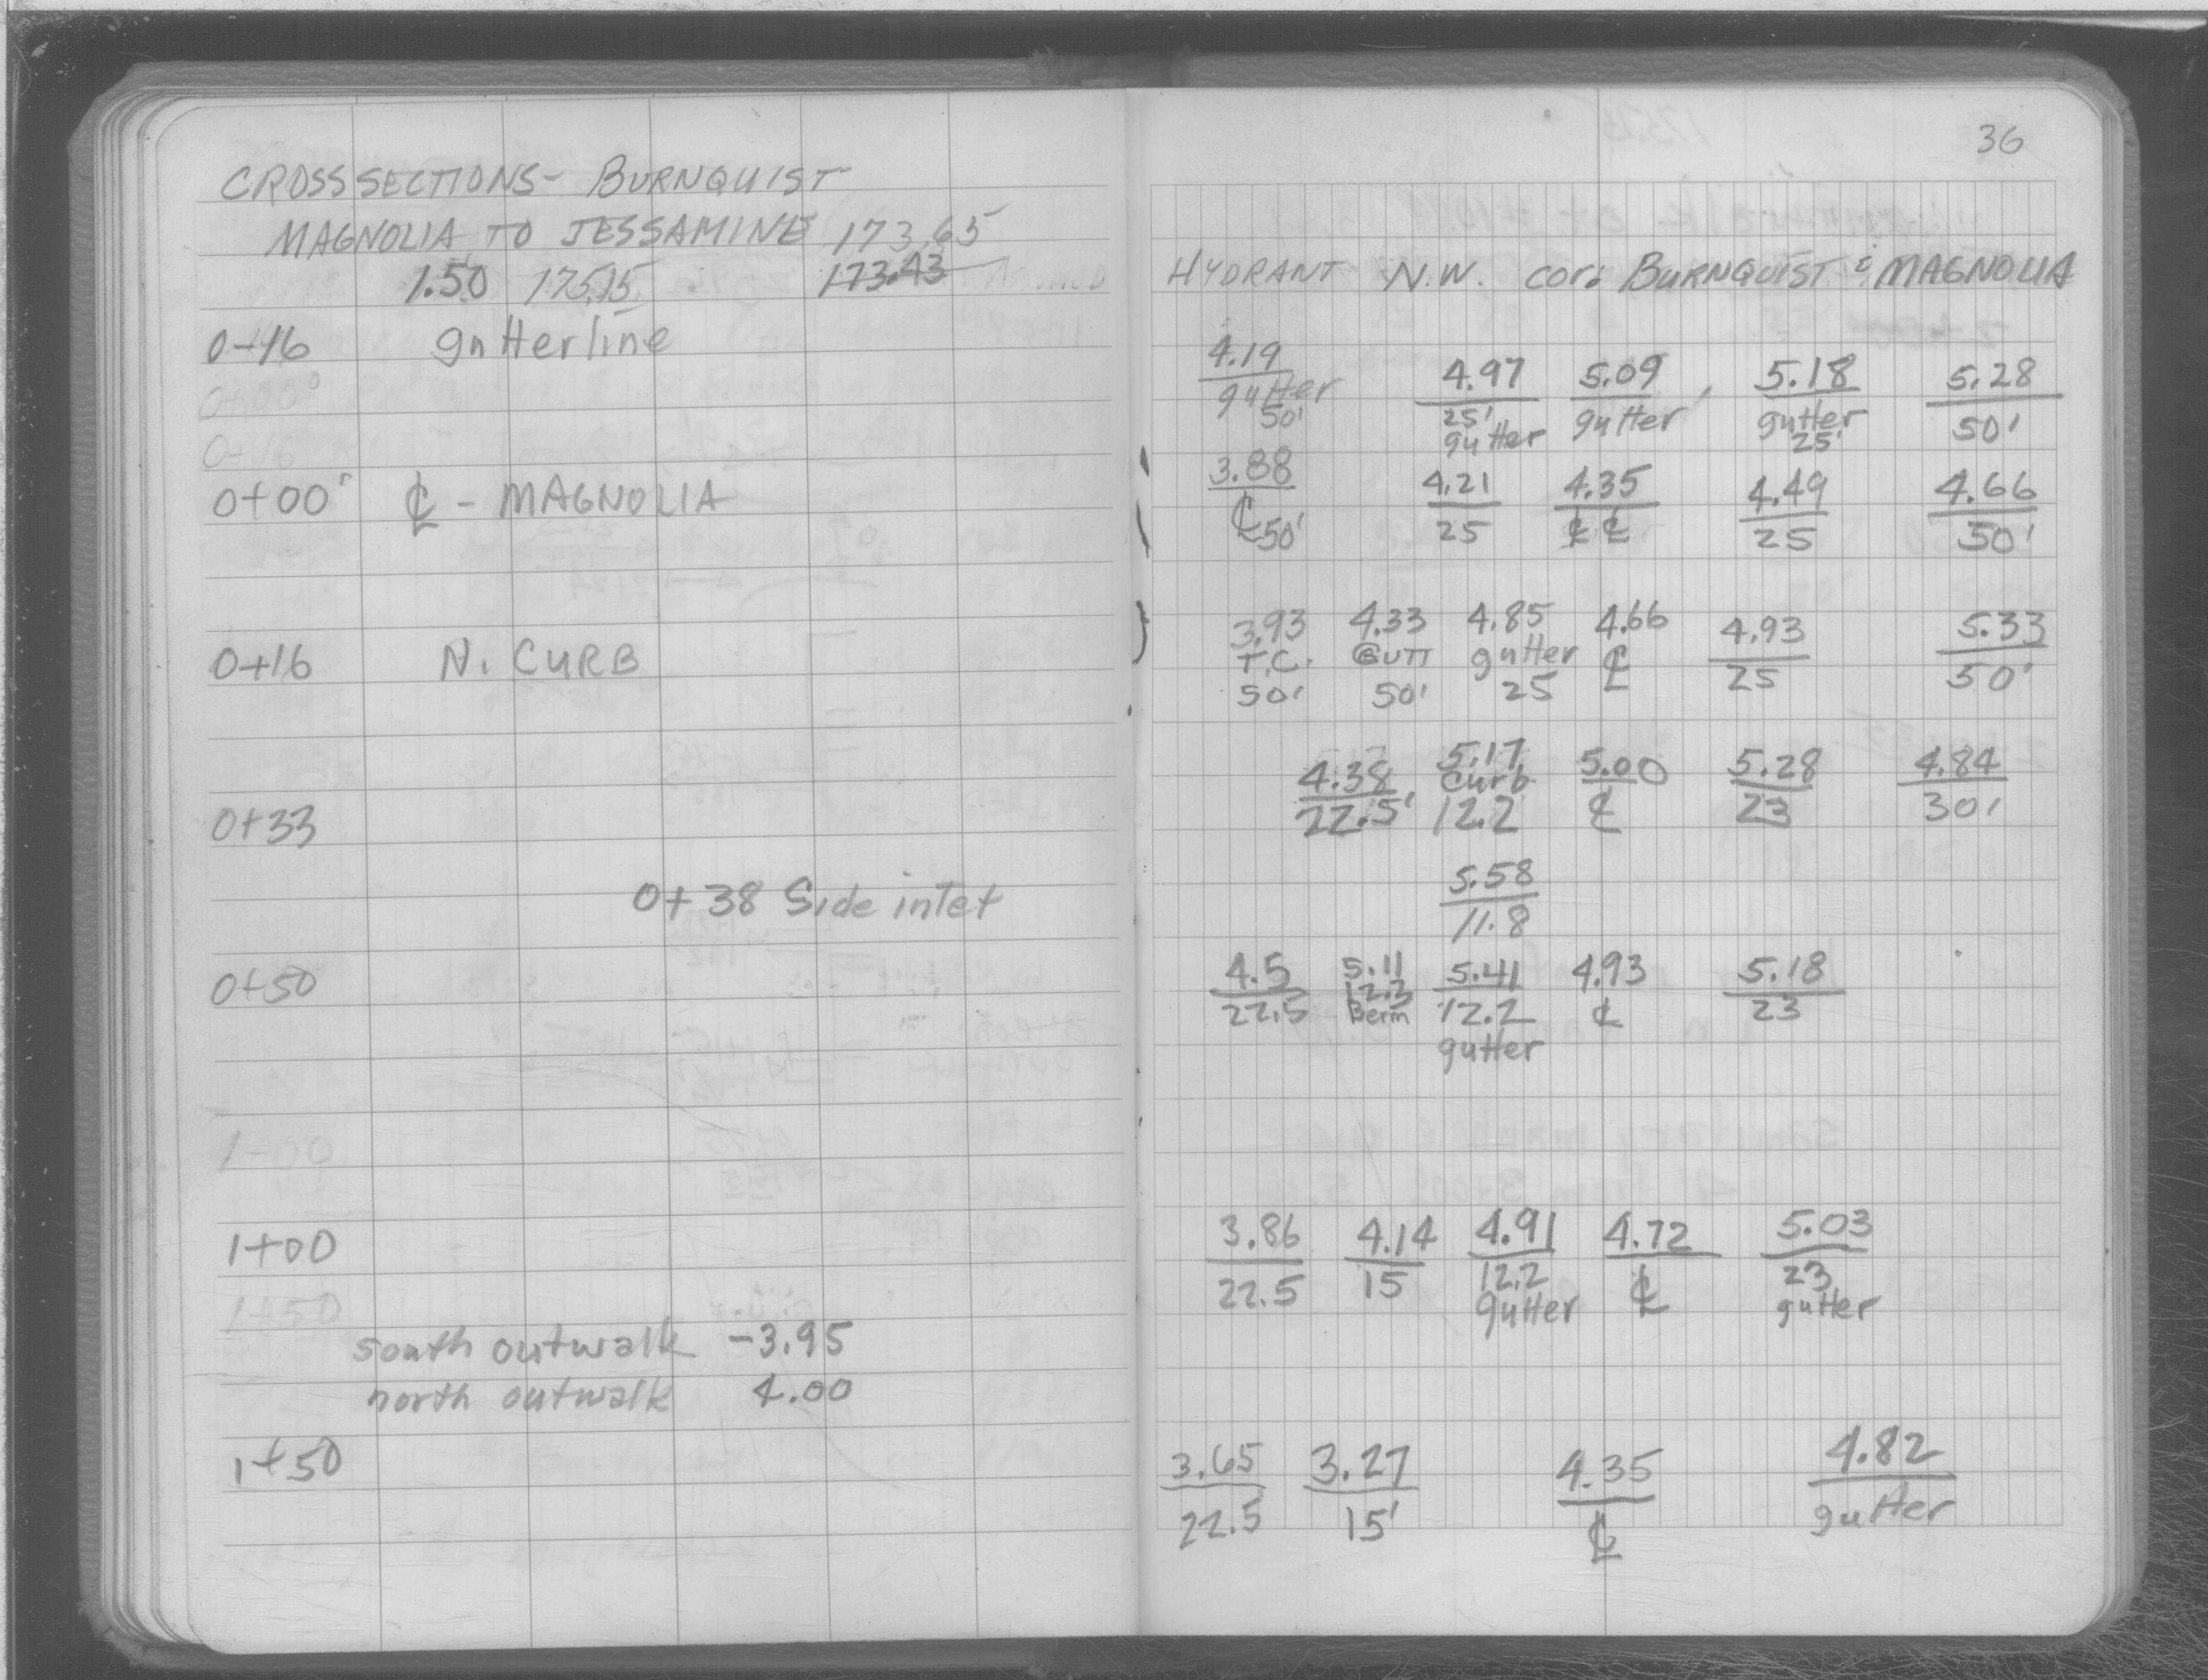 36
CROSSSECTIONS - BURNQUIST
MAGNOLIA TO JESSAMINE 173.65
1.50 175.15 173.43
HYDRANT N.W. cor. BURNQUIST & MAGNOLIA
0-16 gutterline
4.19 4.97 5.09 5.18 5.28
gutter 25' gutter gutter 50'
50' gutter 25'
0+00°
0+16
0+00° ℄ - MAGNOLIA
3.88 4.21 4.35 4.49 4.66
℄ 50' 25 ℄ ℄ 25 50'
0+16 N. CURB
3.93 4.33 4.85 4.66 4.93 5.33
T.C. GUTT gutter ℄ 25 50'
50' 50' 25
0+33
4.38 5.17 5.00 5.28 4.84
22.5' Curb ℄ 23 30'
12.2
0+38 Side inlet
5.58
11.8
0+50
4.5 5.11 5.41 4.93 5.18
22.5 12.2 12.2 ℄ 23
Berm gutter
1+00
1+00
3.86 4.14 4.91 4.72 5.03
22.5 15 12.2 ℄ 23
gutter gutter
1+50
south outwalk -3.95
north outwalk 4.00
1+50
3.65 3.27 4.35 4.82
22.5 15' ℄ gutter